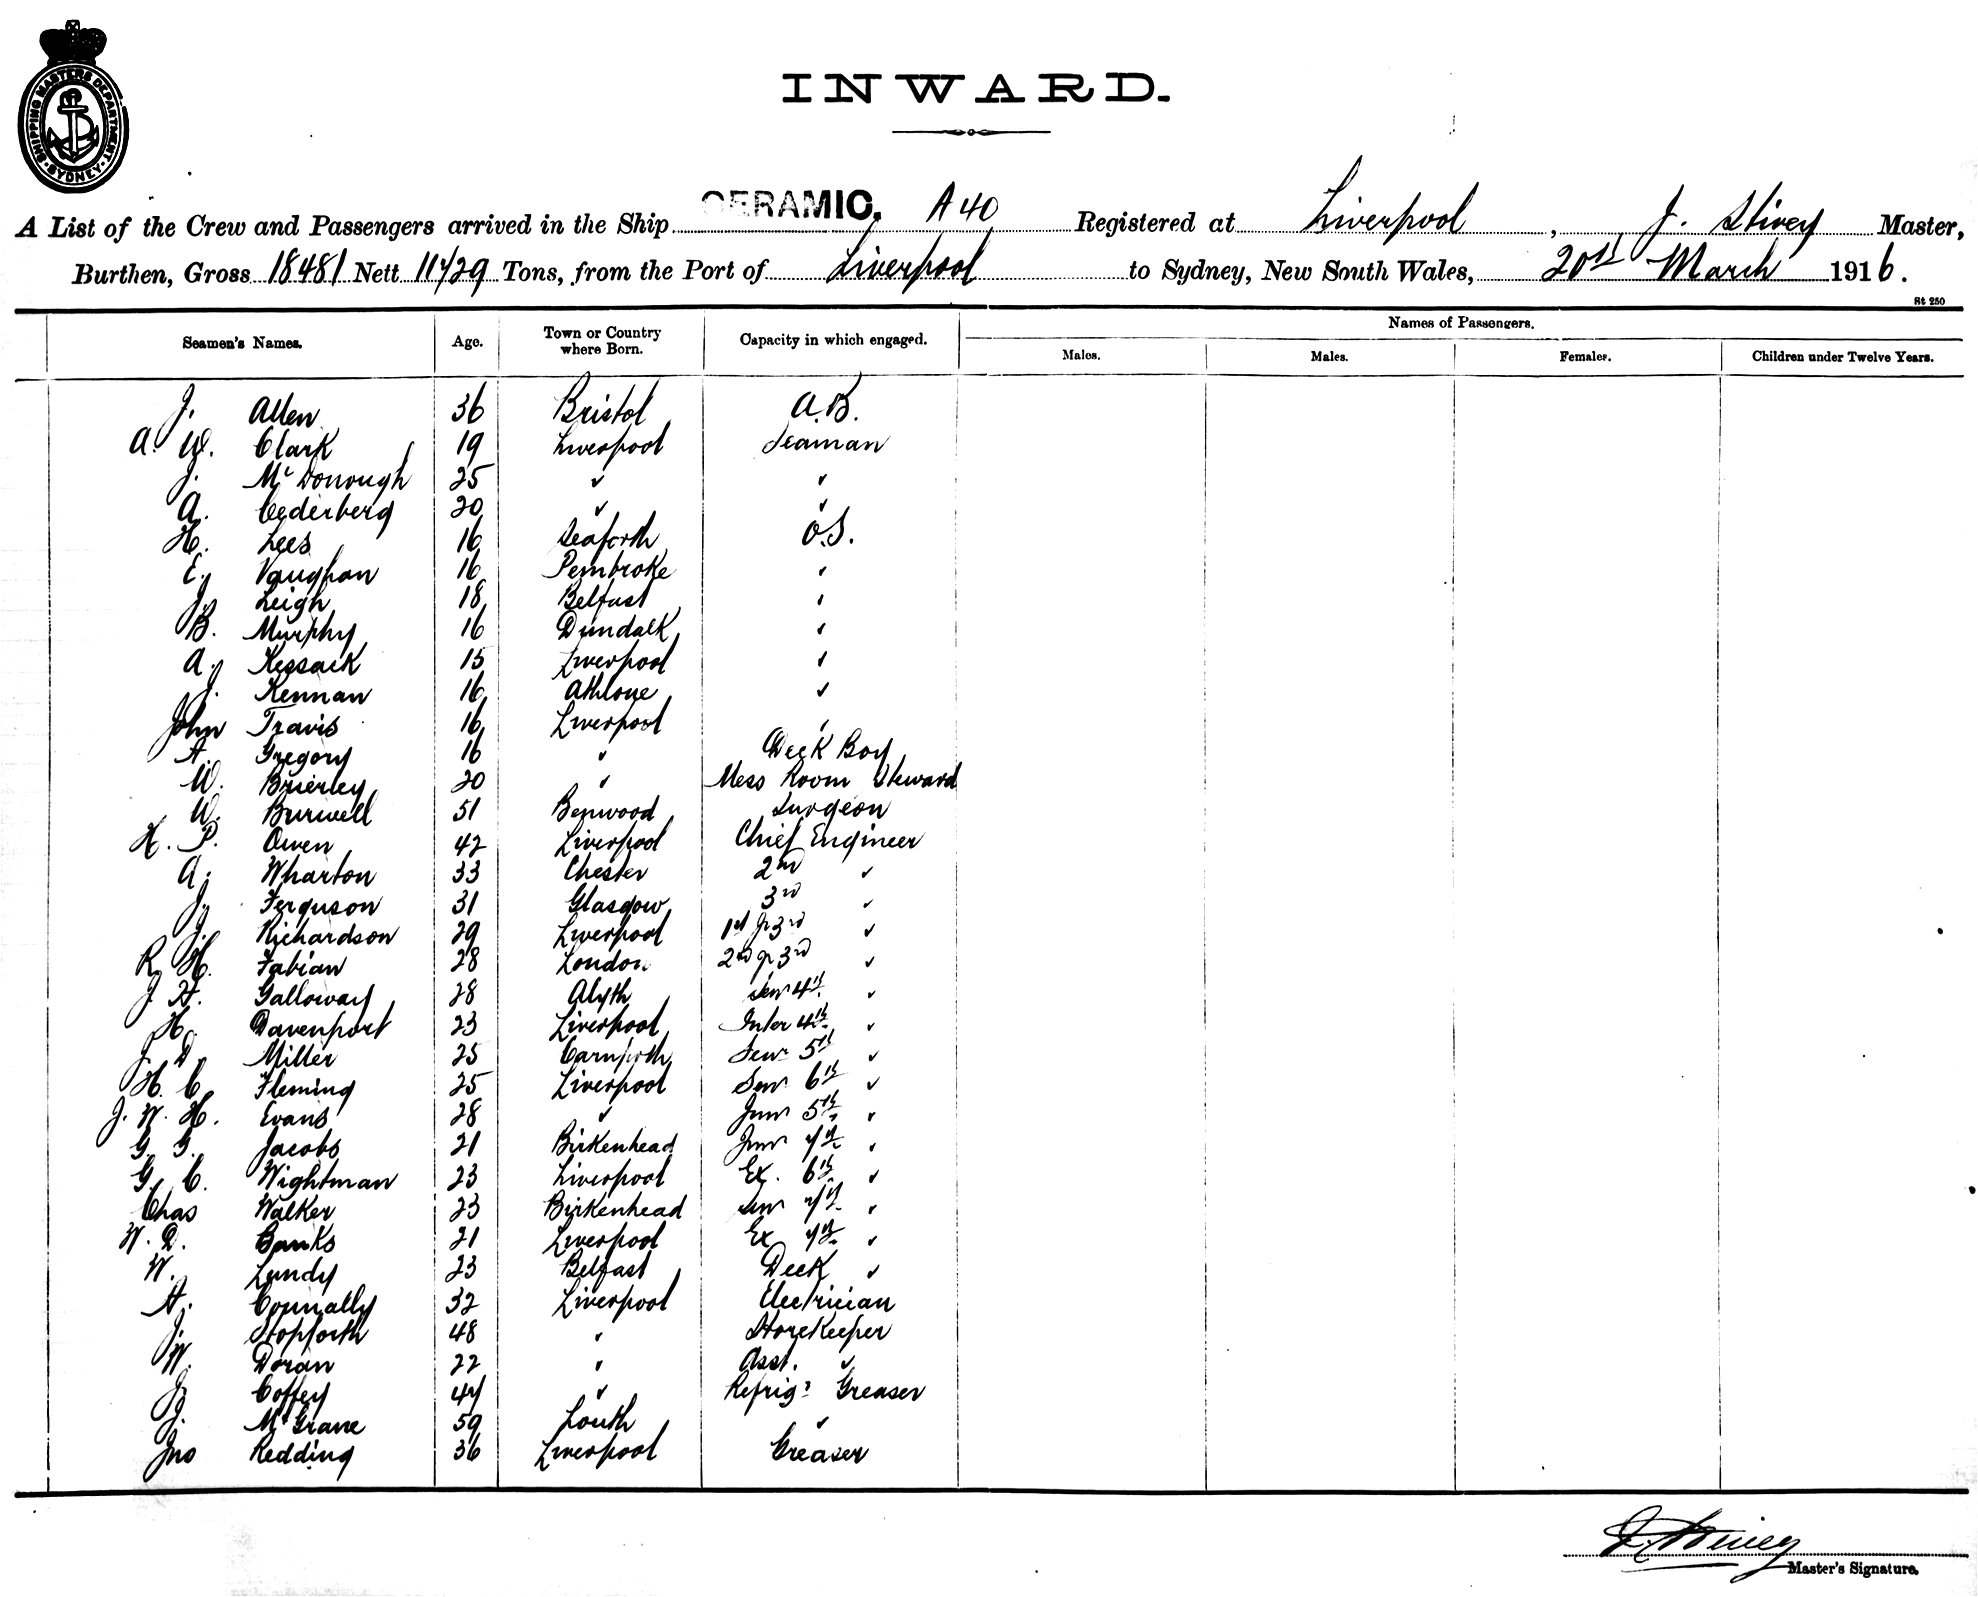 SHIPPING MASTERS DEPARTMENT. SYDNEY
INWARD.
A List of the Crew and Passengers arrived in the Ship CERAMIC. A40 Registered at Liverpool, J. Stivey Master,
Burthen, Gross 18481 Nett 11729 Tons, from the Port of Liverpool to Sydney, New South Wales, 20th March 1916.
St 250
Seamen's Names. Age. Town or Country where Born. Capacity in which engaged. Names of Passengers.
Males. Males. Females. Children under Twelve Years.
J. Allen 36 Bristol A.B.
A. W. Clark 19 Liverpool Seaman
J. McDonough 25 " "
A. Cederberg 20 " "
H. Lees 16 Seaforth O.S.
E. Vaughan 16 Pembroke "
J. Leigh 18 Belfast "
B. Murphy 16 Dundalk "
A. Kessack 15 Liverpool "
J. Kennan 16 Athlone "
John Travis 16 Liverpool "
A. Gregory 16 " Deck Boy
W. Brierley 20 " Mess Room Steward
W. Burwell 51 Benwood Surgeon
H. P. Owen 42 Liverpool Chief Engineer
A. Wharton 33 Chester 2nd "
J. Ferguson 31 Glasgow 3rd "
J. Richardson 29 Liverpool 1st Jr 3rd "
R. H. Fabian 28 London 2nd Jr 3rd "
J. H. Galloway 28 Alyth Senr 4th "
H. Davenport 23 Liverpool Inter 4th "
J. D. Miller 25 Carnforth Senr 5th "
H. C. Fleming 25 Liverpool Senr 6th "
J. W. H. Evans 28 " Junr 5th "
G. G. Jacobs 21 Birkenhead Junr 7th "
G. C. Wightman 23 Liverpool Ex. 6th "
Chas Walker 23 Birkenhead Senr 7th "
W. D. Banks 21 Liverpool Ex 7th "
W. Lundy 23 Belfast Deck "
A. Connally 32 Liverpool Electrician
J. Stopforth 48 " Storekeeper
W. Doran 22 " Asst. "
J. Coffey 47 " Refrigr Greaser
J. McGrane 59 Louth "
Jno Redding 36 Liverpool Greaser
J. Stivey
Master's Signature.